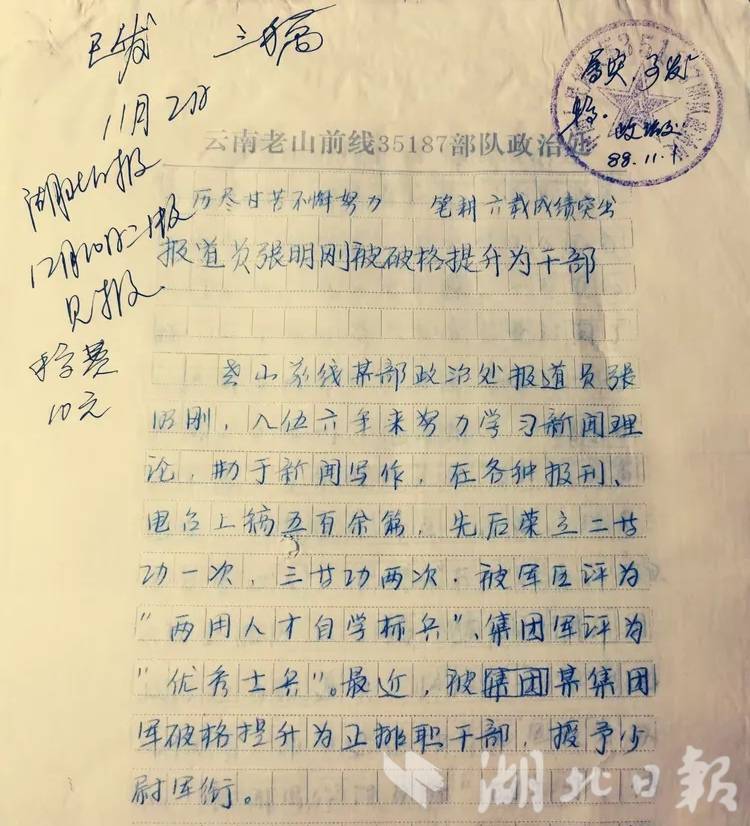 已发 三稿
11月2日
湖北日报
12月20日二版
见报
稿费
10元
属实,可发
稿.
政治处
88.11.1
云南老山前线35187部队政治处
历尽甘苦不懈努力 笔耕六载成绩突出
报道员张明刚被破格提升为干部
老山前线某部政治处报道员张
明刚,入伍六年来努力学习新闻理
论,勤于新闻写作,在各种报刊、
电台上稿五百余篇,先后荣立二等
功一次,三等功两次.被军区评为
“两用人才自学标兵”、集团军评为
“优秀士兵”。最近,被集团某集团
军破格提升为正排职干部,授予少
尉军衔。
湖北日報